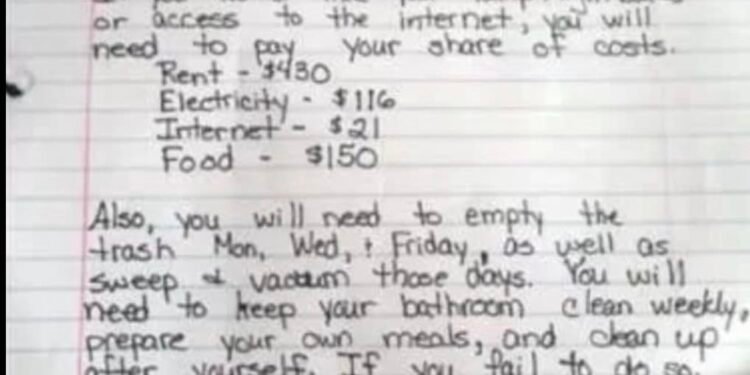 or access to the internet, you will
need to pay your share of costs.
Rent - $430
Electricity - $116
Internet - $21
Food - $150
Also, you will need to empty the
trash Mon, Wed, + Friday, as well as
sweep & vacuum those days. You will
need to keep your bathroom clean weekly,
prepare your own meals, and clean up
after yourself. If you fail to do so,